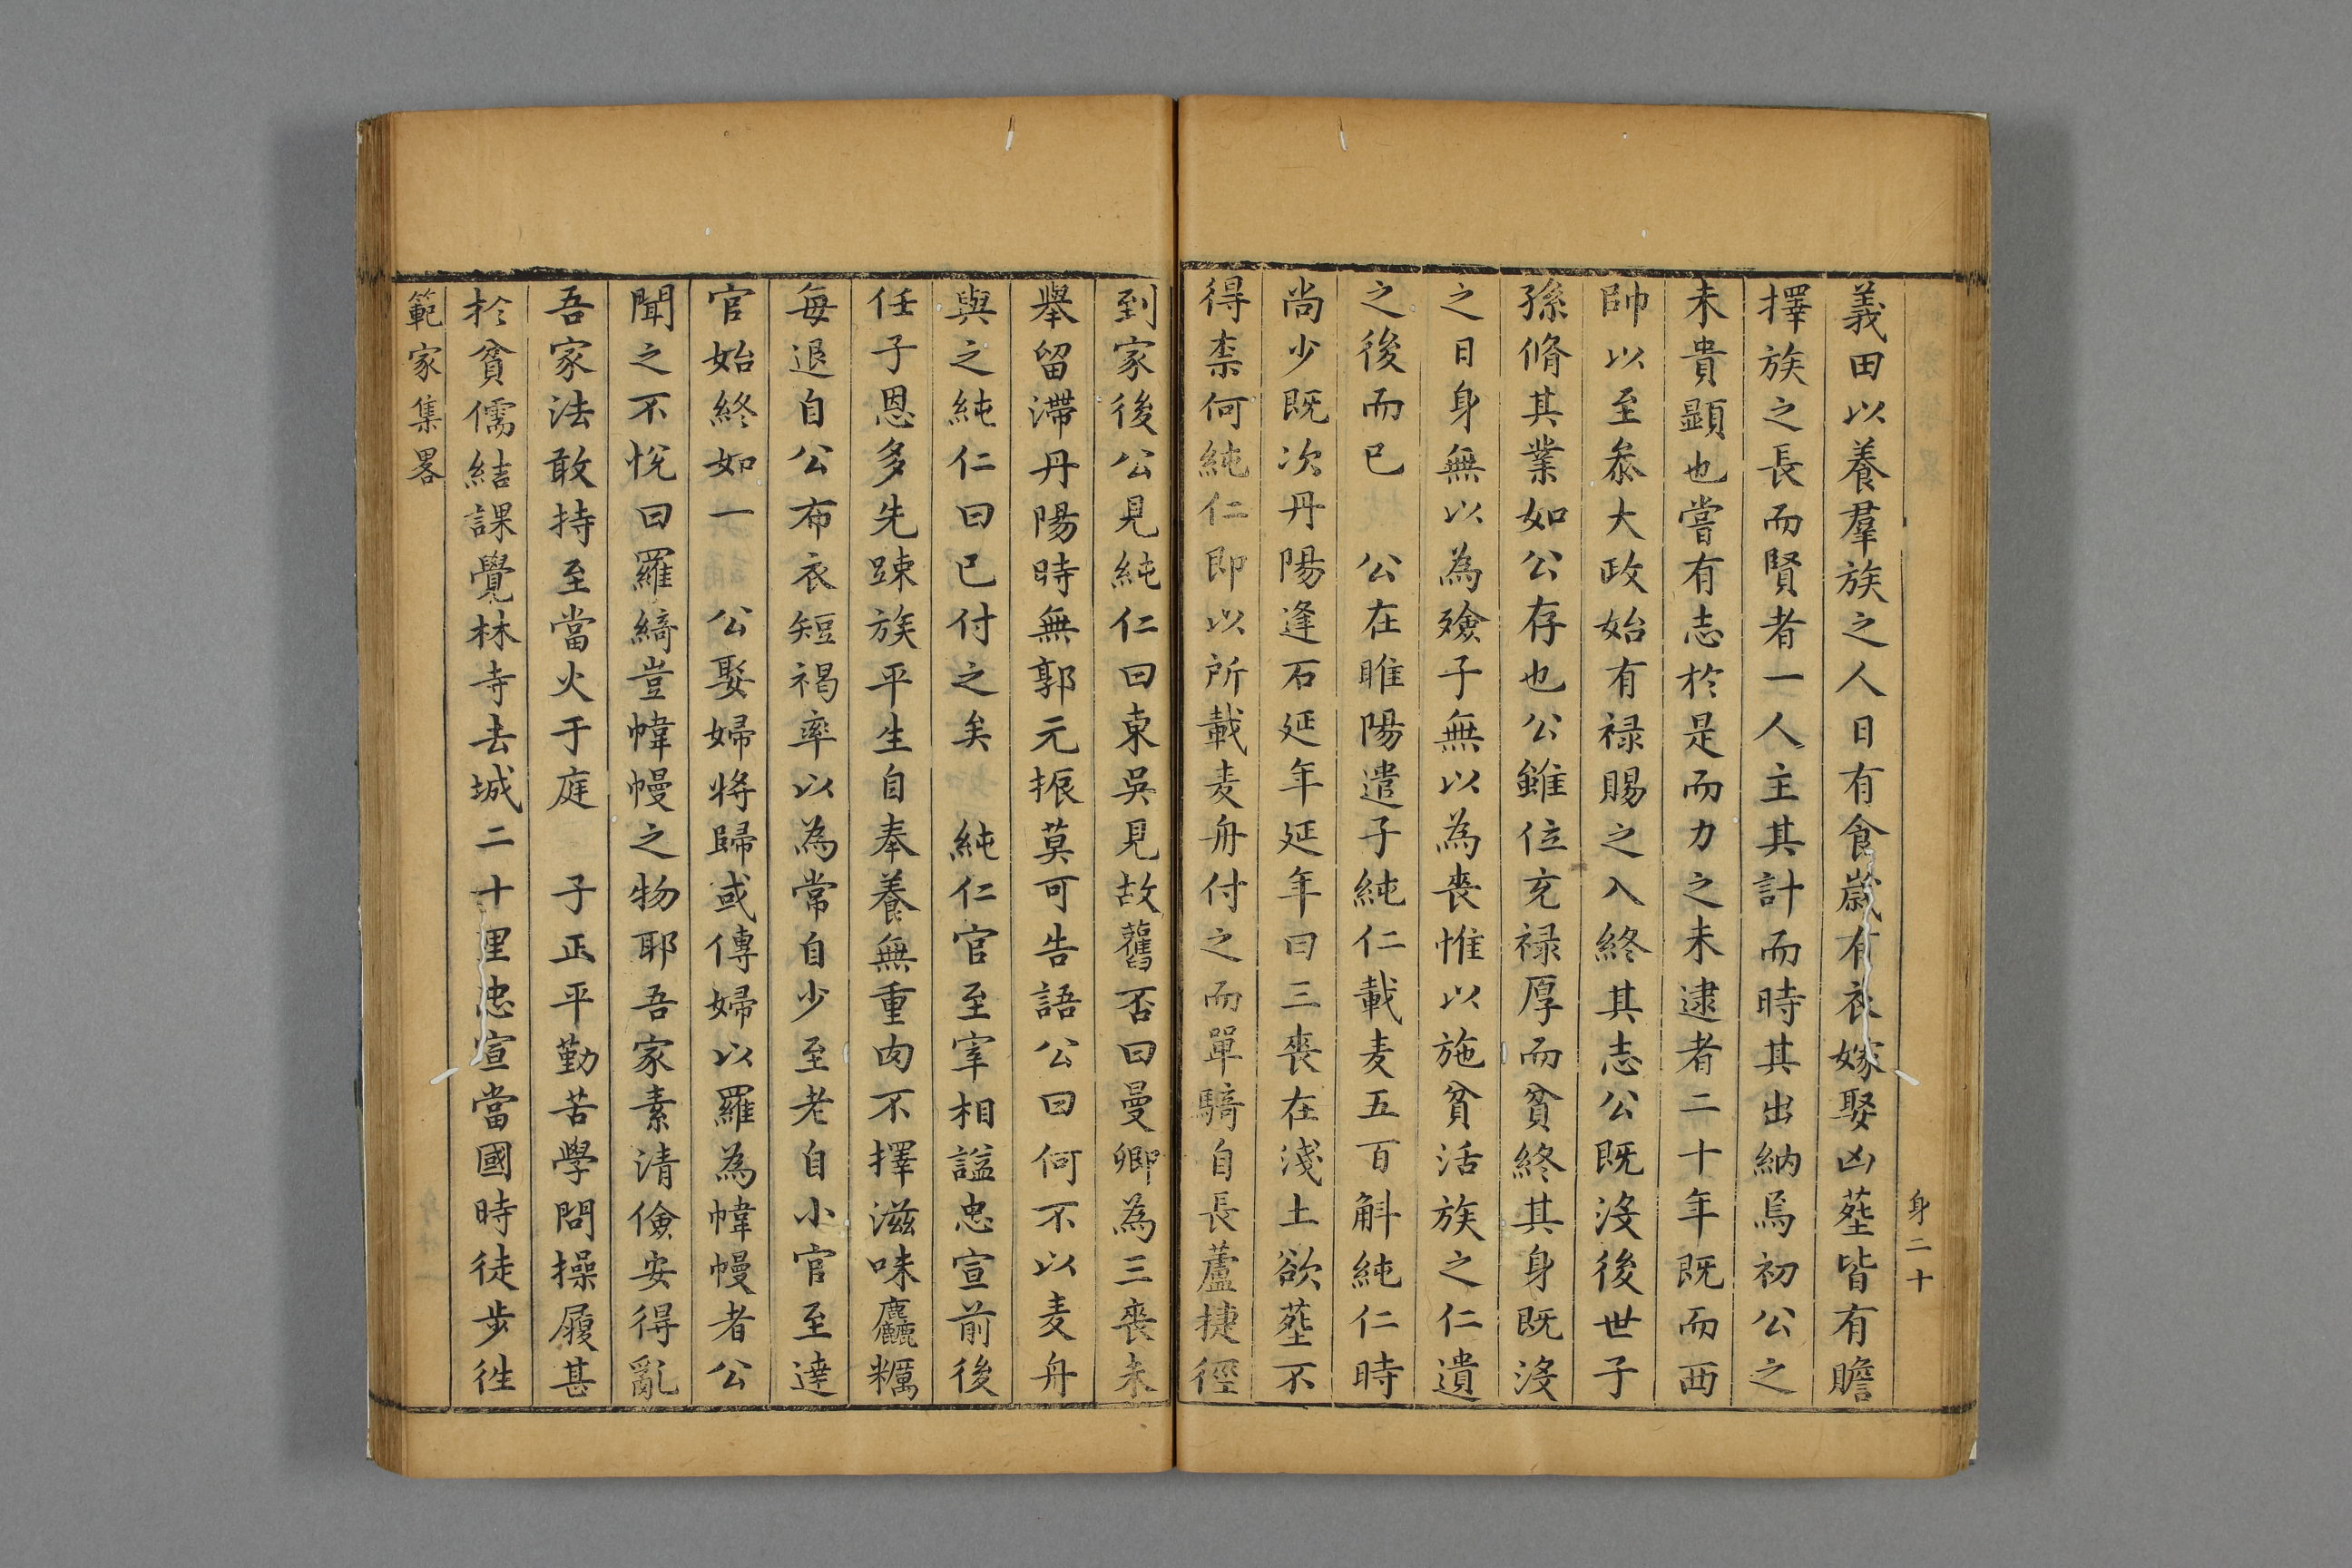 身二十
義田以養羣族之人日有食歲有衣嫁娶凶塟皆有贍
擇族之長而賢者一人主其計而時其出納焉初公之
未貴顯也嘗有志於是而力之未逮者二十年既而西
帥以至叅大政始有禄賜之入終其志公既沒後世子
孫脩其業如公存也公雖位充禄厚而貧終其身既沒
之日身無以為殮子無以為喪惟以施貧活族之仁遺
之後而已　公在睢陽遣子純仁載麦五百斛純仁時
尚少既次丹陽逢石延年延年曰三喪在淺土欲塟不
得柰何純仁即以所載麦舟付之而單騎自長蘆捷徑
到家後公見純仁曰東吳見故舊否曰曼卿為三喪未
舉留滯丹陽時無郭元振莫可告語公曰何不以麦舟
與之純仁曰已付之矣　純仁官至宰相謚忠宣前後
任子恩多先踈族平生自奉養無重肉不擇滋味麤糲
每退自公布衣短褐率以為常自少至老自小官至達
官始終如一　公娶婦將歸或傳婦以羅為幃幔者公
聞之不悅曰羅綺豈幃幔之物耶吾家素清儉安得亂
吾家法敢持至當火于庭　子正平勤苦學問操履甚
於貧儒結課覺林寺去城二十里忠宣當國時徒步徃
範家集畧